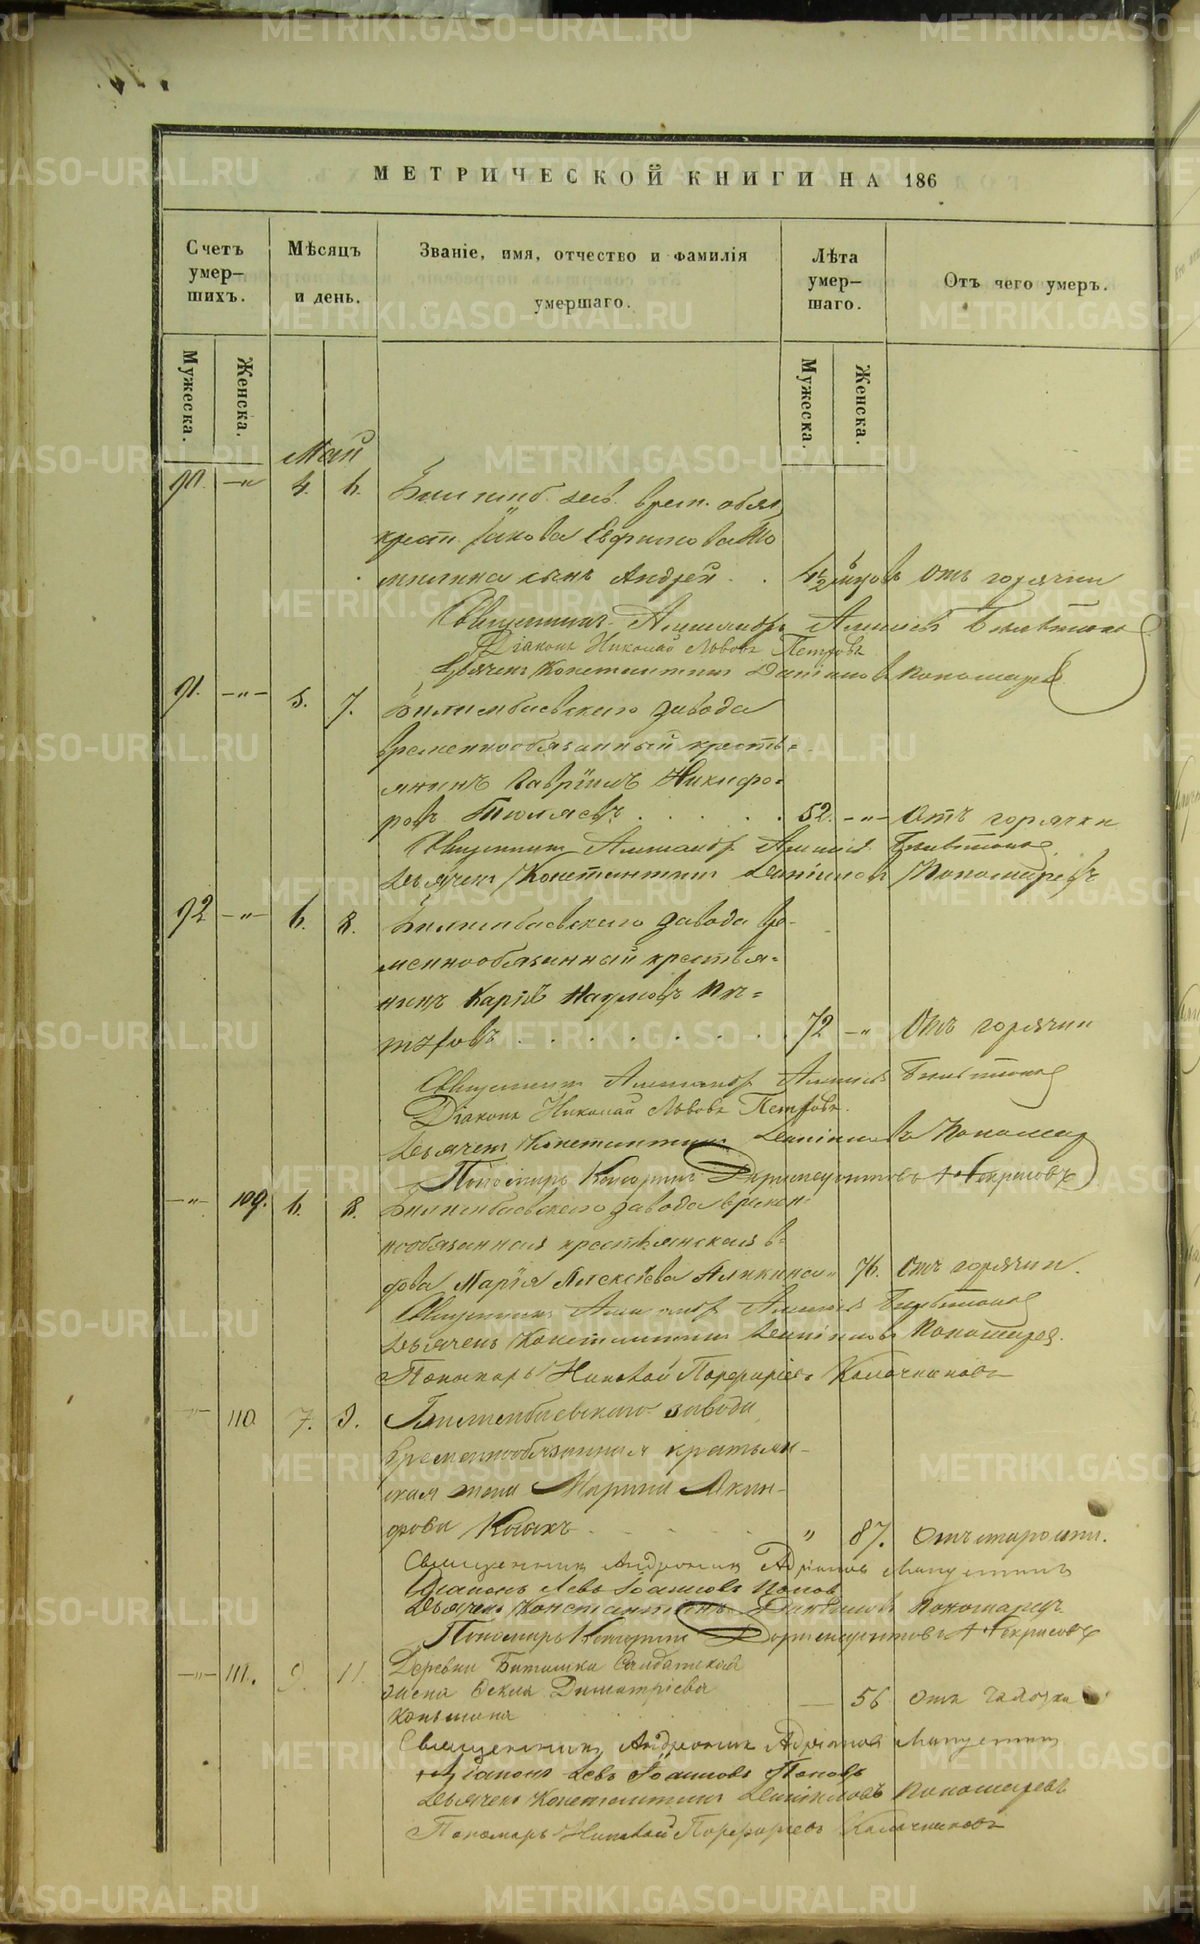 МЕТРИЧЕСКОЙ КНИГИ НА 186
Счетъ умер-шихъ.
Мѣсяцъ и день.
Званіе, имя, отчество и фамилія умершаго.
Лѣта умер-шаго.
Отъ чего умеръ.
Мужеска.
Женска.
Мужеска.
Женска.
Май
90. —„ 4. 6. Билимб. зав. врем. обяз.
крест. Іакова Ефимова
сынъ Андрей . . 4½ Отъ горячки
Священникъ Александръ
Діаконъ Николай Львовъ Петровъ
Дьячекъ Константинъ Даніиловъ Пономаревъ
91. —„— 5. 7. Билимбаевскаго завода
временнообязанный кресть=
янинъ Гавріилъ Никифо=
ровъ . . . . . 52. —„— Отъ горячки
Священникъ Александръ
Дьячекъ Константинъ Даніиловъ Пономаревъ
92 —„— 6. 8. Билимбаевскаго завода вре-
меннообязанный крестья=
нинъ Карпъ Наумовъ
72 —„ Отъ горячки
Священникъ Александръ
Діаконъ Николай Львовъ Петровъ.
Дьячекъ Константинъ Даніиловъ Пономар
Пономарь Дормедонтовъ Некрасовъ
—„— 109. 6. 8. Билимбаевскаго завода времен-
нообязанная крестьянская в-
дова Марія Алексіева 76. Отъ горячки.
Священникъ Александръ
Дьячекъ Константинъ Даніиловъ Пономарев.
Пономарь Николай Порфиріевъ Калачниковъ
—„— 110. 7. 9. Билимбаевскаго завода
временнообязанная крестьян-
ская жена
„ 87. Отъ старости.
Священникъ Андроникъ Адріановъ
Діаконъ Левъ Іоанновъ Поповъ
Дьячекъ Константинъ Даніиловъ Пономаревъ
Пономарь Дормедонтовъ Некрасовъ
—„— 111. 9. 11. Деревни Битимки Солдатская
жена Ѳекла Димитріева
— 56 Отъ чахотки
Священникъ Андроникъ Адріановъ
Діаконъ Левъ Іоанновъ Поповъ
Дьячекъ Константинъ Даніиловъ Пономаревъ
Пономарь Николай Порфирьевъ Калачниковъ
METRIKI.GASO-URAL.RU